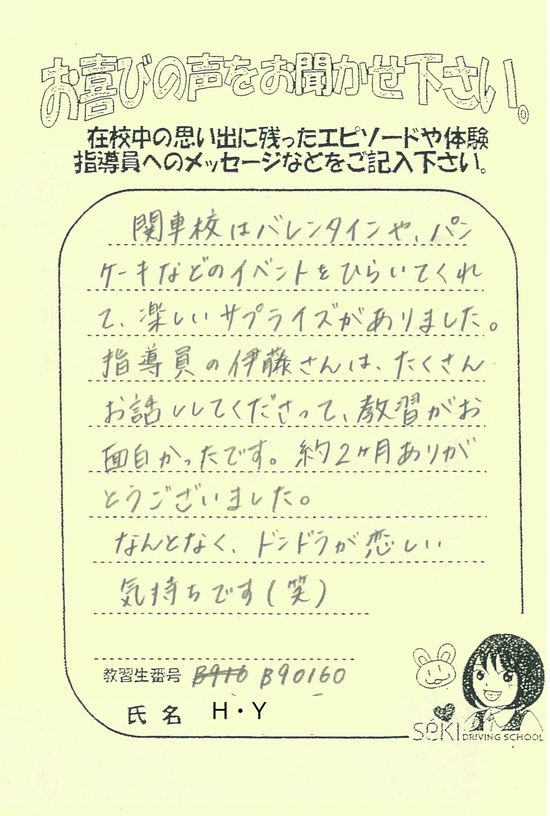 お喜びの声をお聞かせ下さい。
在校中の思い出に残ったエピソードや体験
指導員へのメッセージなどをご記入下さい。
関車校はバレンタインや、パン
ケーキなどのイベントをひらいてくれ
て、楽しいサプライズがありました。
指導員の伊藤さんは、たくさん
お話ししてくださって、教習がお
面白かったです。約2ヶ月ありが
とうございました。
なんとなく、ドンドラが恋しい
気持ちです(笑)
教習生番号 B916 B90160
氏名 H・Y
SeKI DRIVING SCHOOL